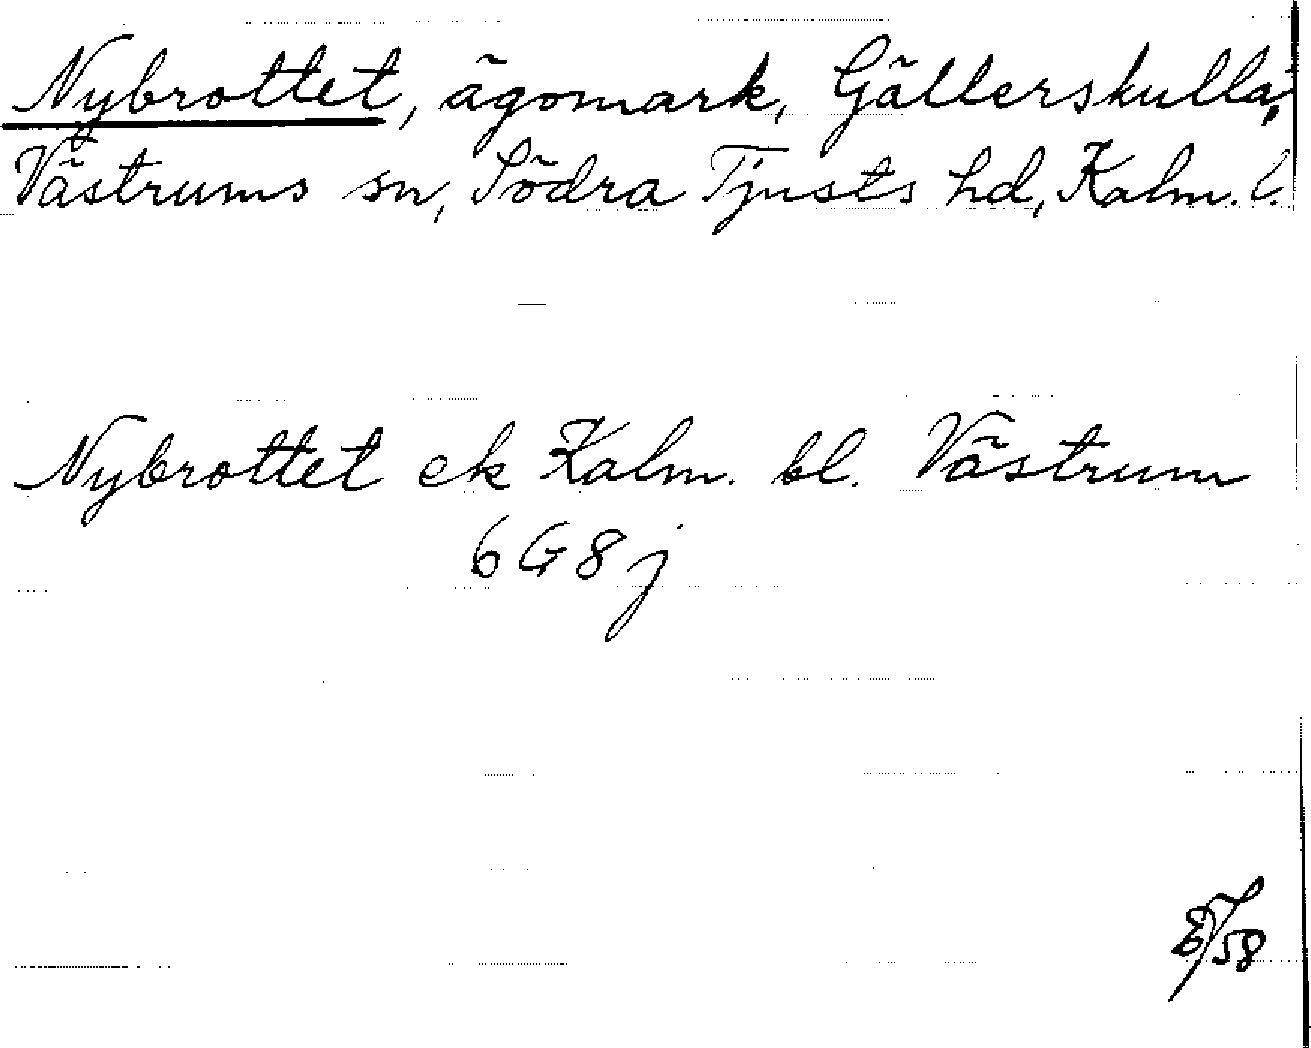 Nybrottet, ägomark, Gällerskulla,
Västrums sn, Södra Tjusts hd, Kalm. l.
Nybrottet ek Kalm. bl. Västrum
6G8j
/58